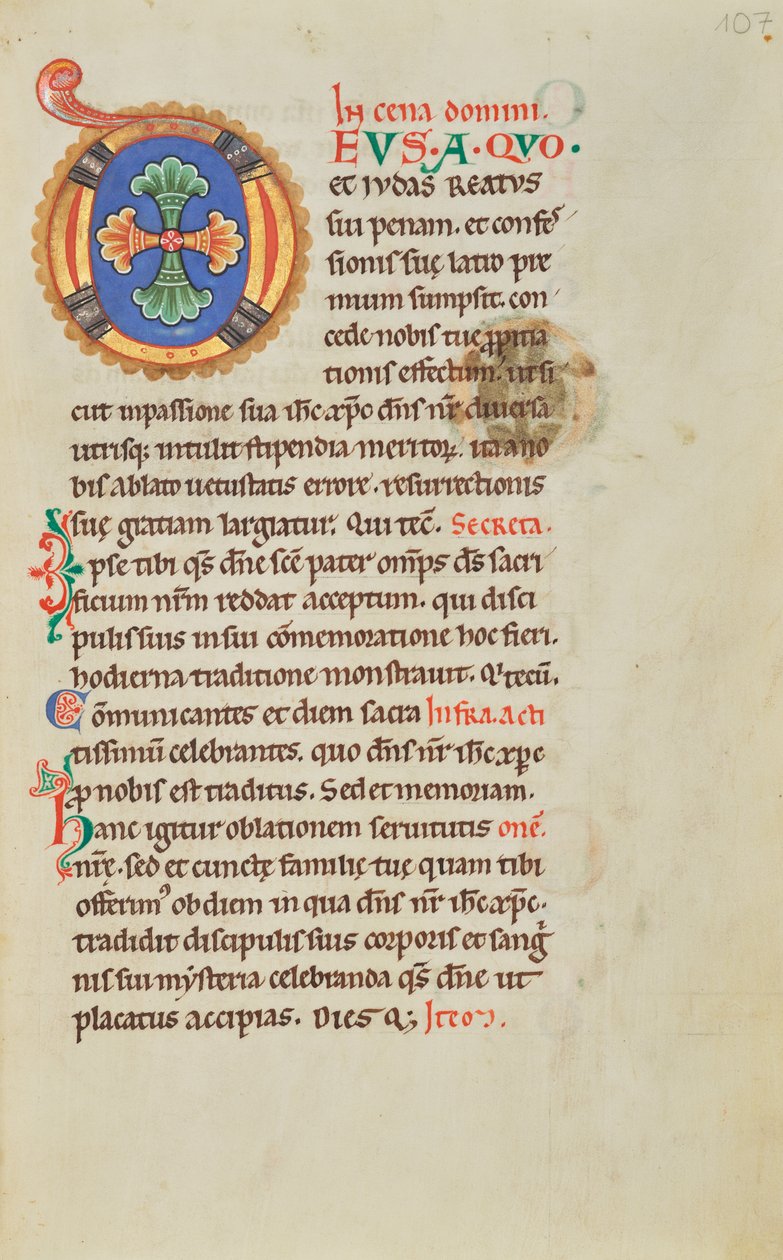 107
In cena domini.
DEUS. A. QUO.
et iudas reatus
sui penam. et confes
sionis suę latro pre
mium sumpsit. con
cede nobis tuę ꝓpitia
tionis effectum. ut si
cut inpassione sua ih̄c xp̄c dn̄s nr̄ diuersa
utrisq; intulit stipendia meritoꝝ. ita ano
bis ablato uetustatis errore. resurrectionis
suę gratiam largiatur. Qui tec̄. Secreta.
Ipse tibi qs̄ dn̄e sc̄e pater om̄ps ds̄ sacri
ficium nr̄m reddat acceptum. qui disci
pulis suis insui cōmemoratione hoc fieri.
hodierna traditione monstrauit. Qui tecū.
Cōmunicantes et diem sacra Infra. acti
tissimū celebrantes. quo dn̄s nr̄ ih̄c xp̄c
ꝓ nobis est traditus. Sed et memoriam.
Hanc igitur oblationem seruitutis onē.
nr̄ę. sed et cunctę familię tuę quam tibi
offerimꝰ ob diem in qua dn̄s nr̄ ih̄c xp̄c.
tradidit discipulis suis corporis et sangi
nis sui mẏsteria celebranda qs̄ dn̄e ut
placatus accipias. Dies Q;